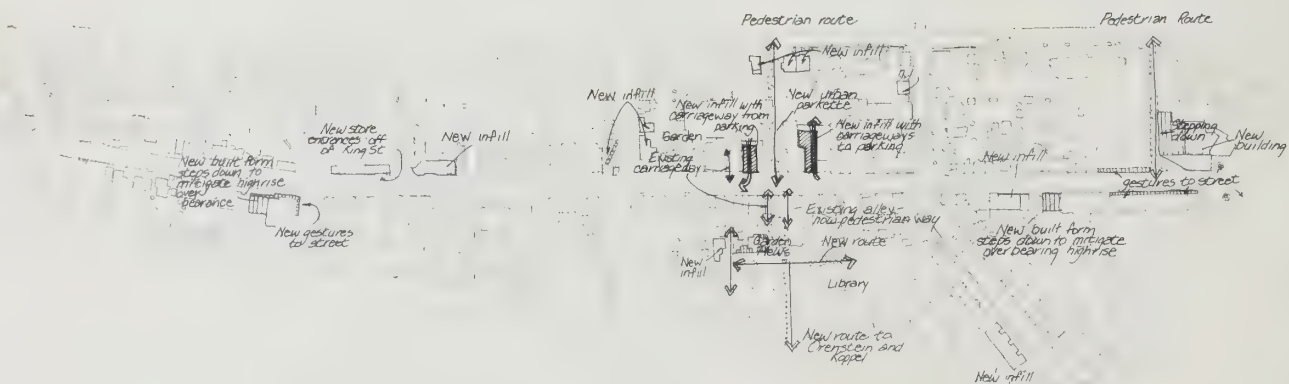 Pedestrian route
Pedestrian Route
New infill
New infill
New infill with
carriageway from
parking
New urban
parkette
New infill with
carriageways
to parking
Garden
Existing
carriageway
New store
entrances off
of King St
New infill
New built form
steps down to
mitigate highrise
over
bearance
New gestures
to street
Stepping
down
New
building
New infill
gestures to street
Existing alley
now pedestrian way
New built form
steps down to mitigate
overbearing highrise
Garden
Mews
New route
New
infill
Library
New route to
Orenstein and
Koppel
New infill